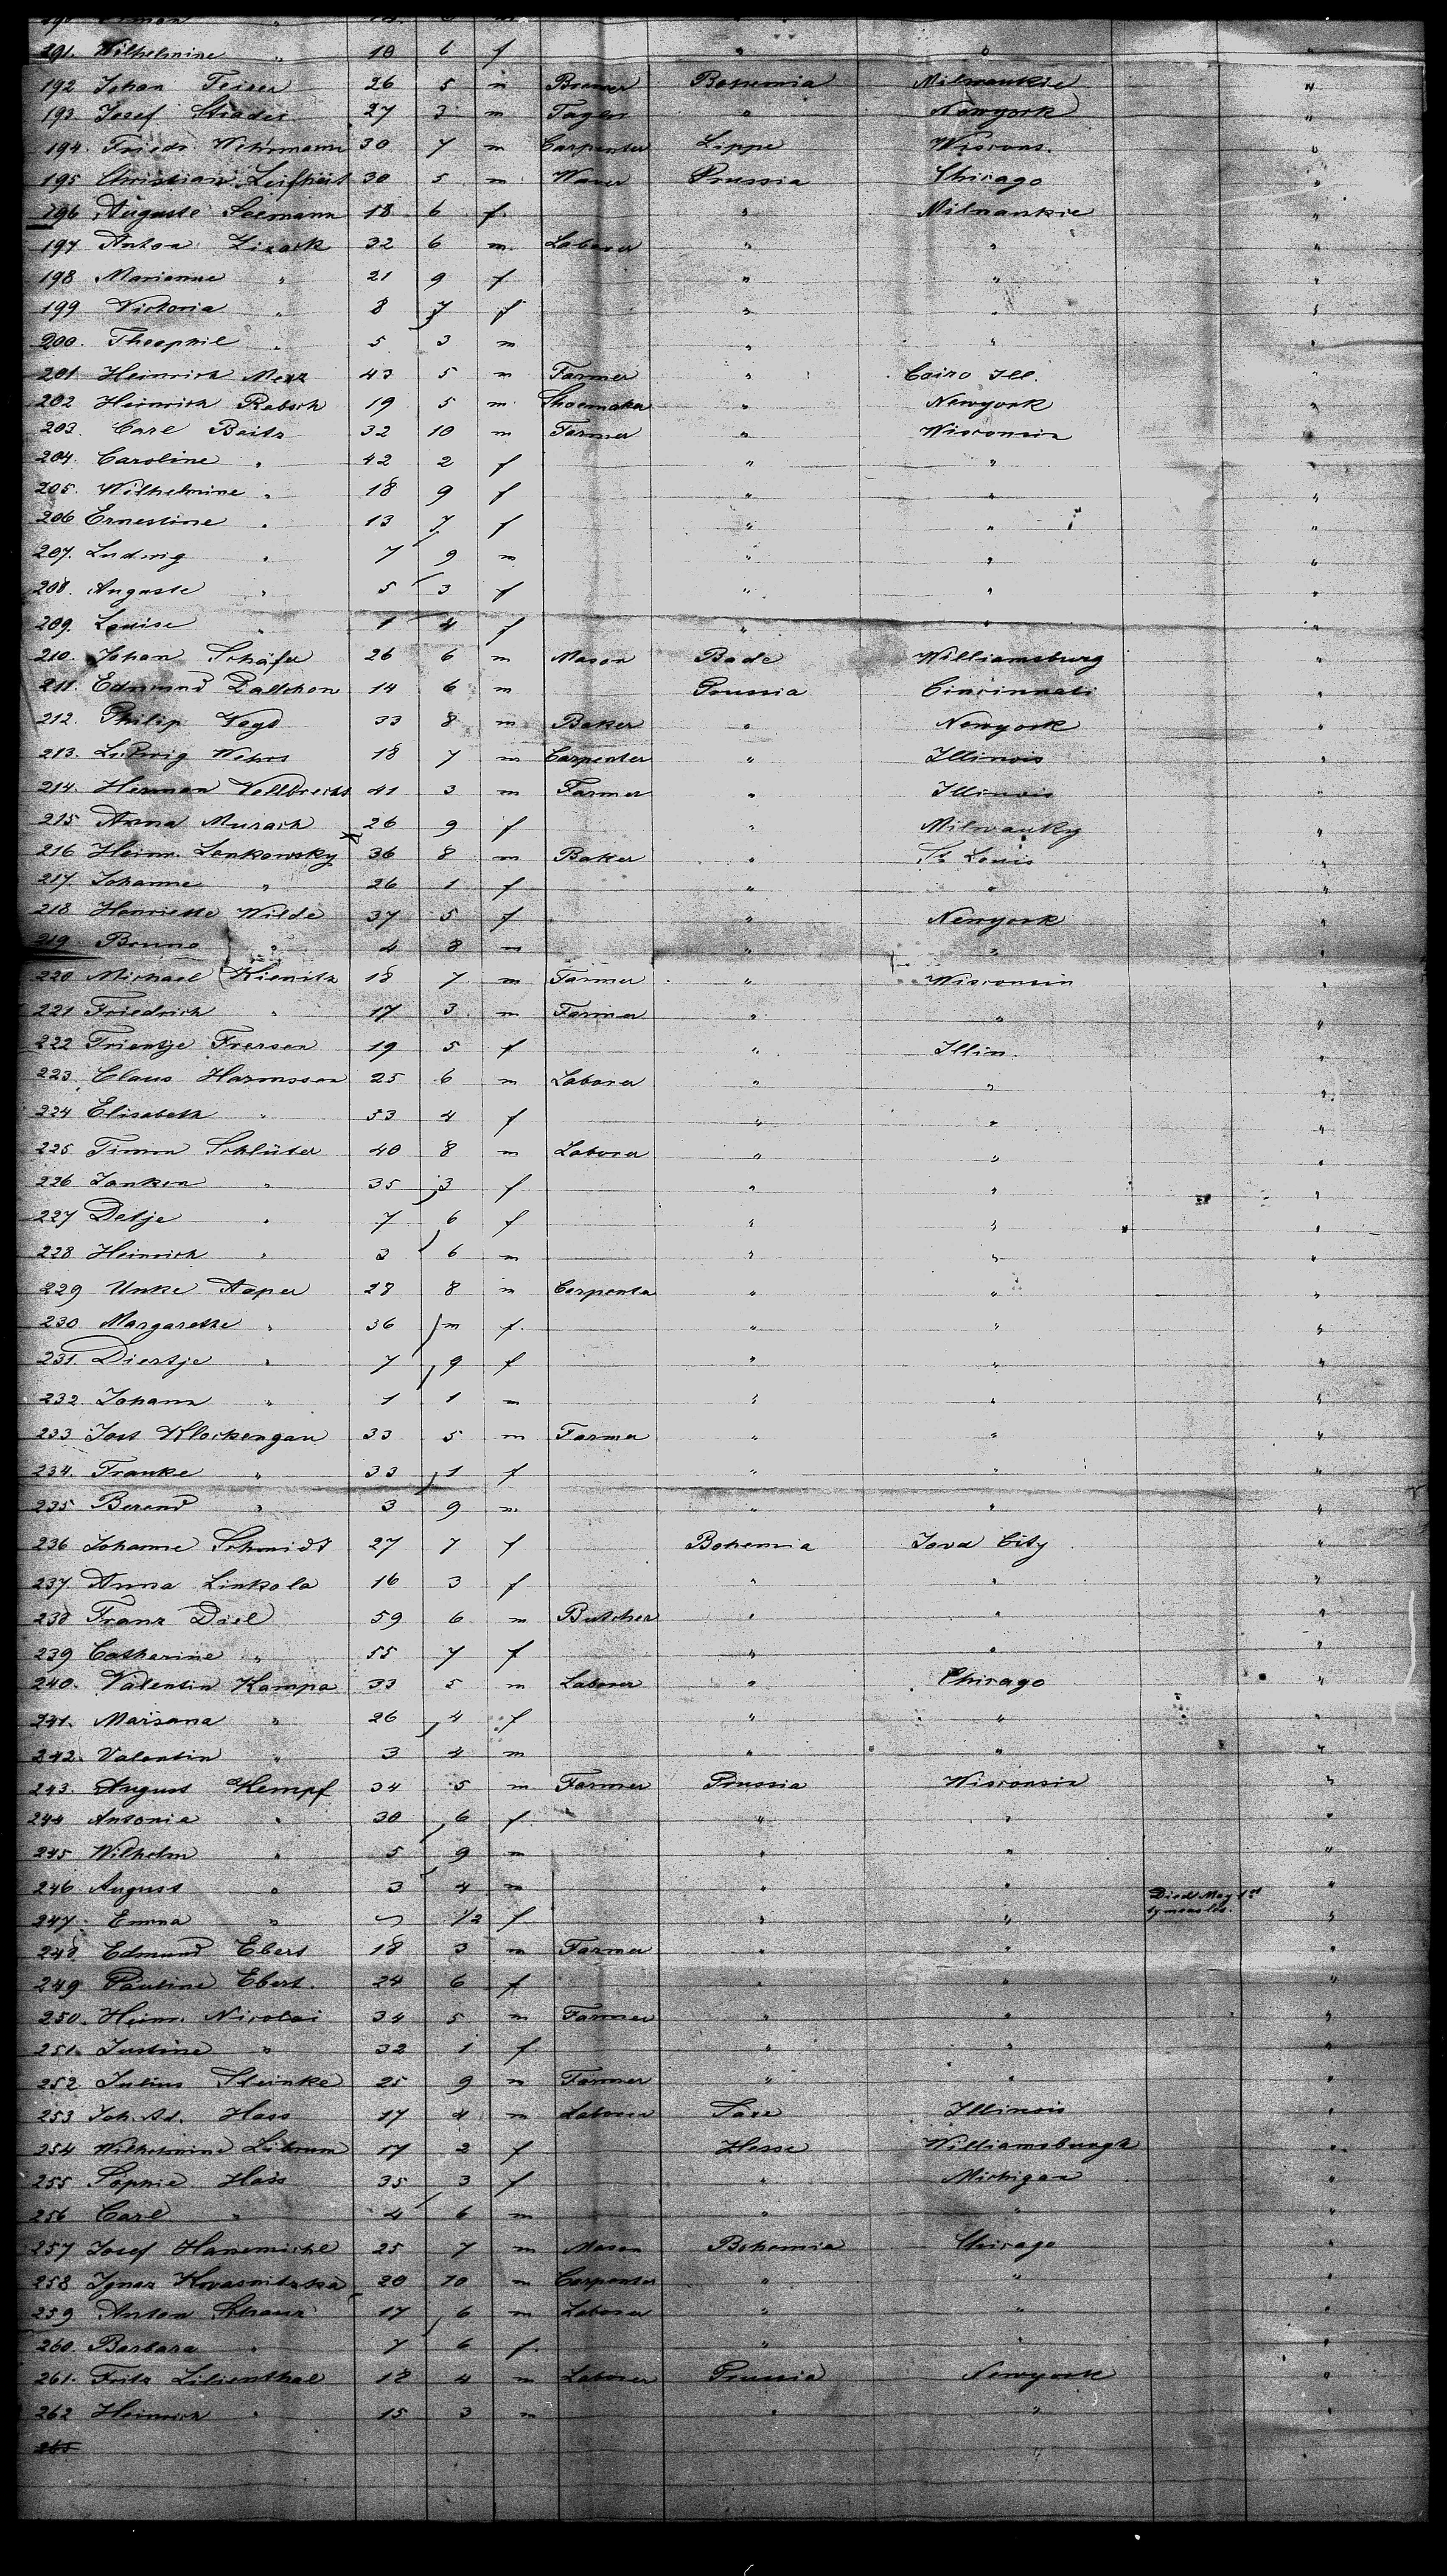 291. Wilhelmine " 10 6 f " " "
192 Johan Teirer 26 5 m Bremer Bohemia Milwaukie "
193 Josef Strades 27 3 m Taglor " Newyork "
194. Friedr. Wehrmann 30 7 m Carpenter Lippe Wiscons. "
195 Christian Leifheit 30 5 m Waver Prussia Chicago "
196 Auguste Seemann 18 6 f " Milwaukie "
197 Anton Zizack 32 6 m Laborer " " "
198 Marianne " 21 9 f " " "
199 Victoria " 8 7 f " " "
200. Theophil " 5 3 m " " "
201 Heinrich Merz 43 5 m Farmer " Cairo Ill. "
202 Heinrich Rebsch 19 5 m Shoemaker " Newyork "
203. Carl Beitz 32 10 m Farmer " Wisconsin "
204. Caroline " 42 2 f " " "
205. Wilhelmine " 18 9 f " " "
206 Ernestine " 13 7 f " " "
207. Ludwig " 7 9 m " " "
208. Auguste " 5 3 f " " "
209. Louise " 1 4 f " " "
210. Johan Schäfer 26 6 m Mason Bade Williamsburg "
211. Edmund Dalichon 14 6 m Prussia Cincinnati "
212. Philip Vogd 33 8 m Baker " Newyork "
213. Ludwig Wehrs 18 7 m Carpenter " Illinois "
214. Herman Vollbrecht 41 3 m Farmer " Illinois "
215 Anna Murach 26 9 f " Milwauky "
216 Heinr. Lenkowsky x 36 8 m Baker " St Louis "
217. Johanne " 26 1 f " " "
218 Henriette Wilde 37 5 f " Newyork "
219. Bruno " 4 8 m " " "
220 Michael Kienitz 18 7 m Farmer " Wisconsin "
221 Friedrich " 17 3 m Farmer " " "
222 Trientje Frersen 19 5 f " Illin. "
223. Claus Harmssen 25 6 m Laborer " " "
224 Elisabeth " 53 4 f " " "
225 Timm Schlüter 40 8 m Laborer " " "
226 Janken " 35 3 f " " "
227 Detje " 7 6 f " " "
228 Heinrich " 3 6 m " " "
229 Unke Aaper 28 8 m Carpenter " " "
230 Margarethe " 36 m f " " "
231. Diertje " 7 9 f " " "
232 Johann " 1 1 m " " "
233 Jost Klockengau 33 5 m Farmer " " "
234. Frauke " 33 1 f " " "
235 Berend " 3 9 m " " "
236 Johanne Schmidt 27 7 f Bohemia Jova City "
237. Anna Linkola 16 3 f " " "
238 Franz Diel 59 6 m Butcher " " "
239 Catherine " 55 7 f " " "
240. Valentin Kampa 33 5 m Laborer " Chicago "
241. Mariana " 26 4 f " " "
242. Valentin " 3 4 m " " "
243. August Kempf 34 5 m Farmer Prussia Wisconsin "
244 Antonia " 30 6 f " " "
245 Wilhelm " 5 9 m " " "
246 August " 3 4 m " " "
247. Emma " 1/2 f " " Died May 1st by measles. "
248 Edmund Ebert 18 3 m Farmer " " "
249 Pauline Ebert. 24 6 f " " "
250. Heinr. Nicolai 34 5 m Farmer " " "
251. Justine " 32 1 f " " "
252 Julius Steinke 25 9 m Farmer " " "
253 Joh. Ad. Hass 17 4 m Laborer Saxe Illinois "
254 Wilhelmine 17 2 f Hesse Williamsburgh "
255 Sophie Hass 35 3 f " Michigan "
256 Carl " 4 6 m " " "
257 Josef Hanemichl 25 7 m Mason Bohemia Chicago "
258 Ignaz 20 10 m Carpenter " " "
259 Anton Schanz 17 6 m Laborer " " "
260. Barbara " 7 6 f " " "
261. Fritz Lilienthal 18 4 m Laborer Prussia Newyork "
262 Heinrich " 15 3 m " " "
263 "